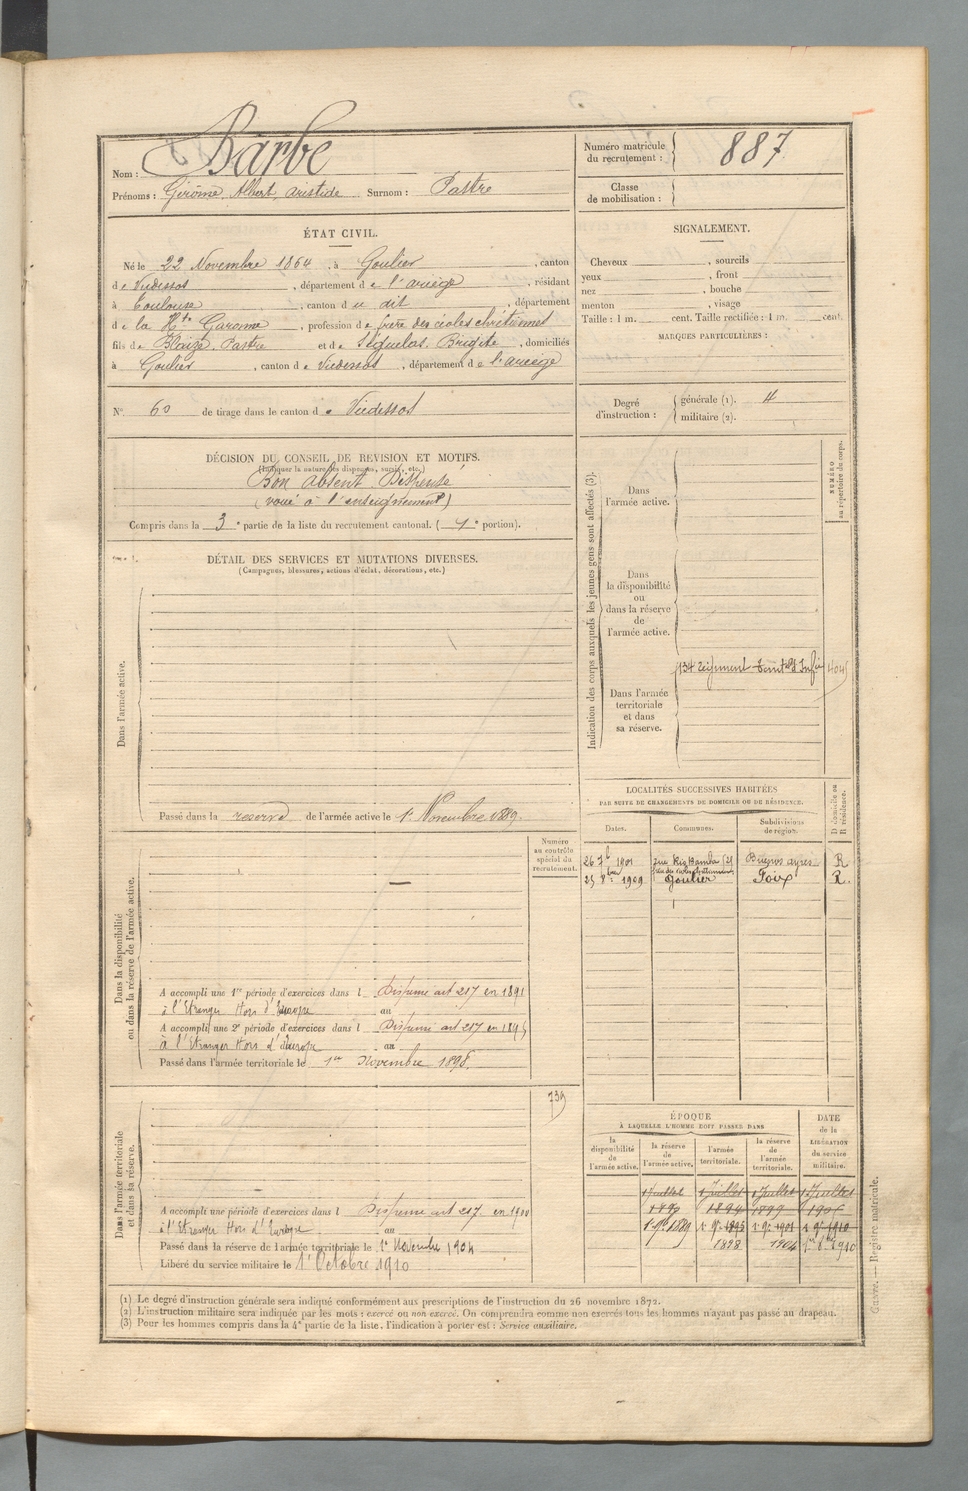 Nom : Barbe
Prénoms : Girôme, Albert, aristide Surnom : Pastre
Numéro matricule du recrutement : 887
Classe de mobilisation :
ÉTAT CIVIL.
Né le 22 Novembre 1864, à Goulier, canton
de Vicdessos, département de l'ariège, résidant
à Toulouse, canton du dit, département
de la Hte Garonne, profession de frère des écoles chrétiennes
fils de Blaize, Pastre et de Séguelas, Brigite, domiciliés
à Goulier, canton de Vicdessos, département de l'ariège
N° 60 de tirage dans le canton de Vicdessos
SIGNALEMENT.
Cheveux , sourcils
yeux , front
nez , bouche
menton , visage
Taille : 1 m. cent. Taille rectifiée : 1 m. cent.
MARQUES PARTICULIÈRES :
Degré d'instruction : générale (1). 4
militaire (2).
DÉCISION DU CONSEIL DE REVISION ET MOTIFS.
(Indiquer la nature des dispenses, sursis, etc.)
Bon absent Dispensé
(voué à l'enseignement)
Compris dans la 3e partie de la liste du recrutement cantonal. (1e portion).
DÉTAIL DES SERVICES ET MUTATIONS DIVERSES.
(Campagnes, blessures, actions d'éclat, décorations, etc.)
Dans l'armée active.
Passé dans la reserve de l'armée active le 1er Novembre 1889.
Dans la disponibilité
ou dans la réserve de l'armée active.
Numéro
au contrôle
spécial du
recrutement.
A accompli une 1re période d'exercices dans l Dispensé art 217 en 1891
à l'Etranger Hors d'Europe au
A accompli une 2e période d'exercices dans l Dispensé art 217 en 1895
à l'Etranger Hors d'Europe au
Passé dans l'armée territoriale le 1er Novembre 1898.
Dans l'armée territoriale
et dans sa réserve.
739
A accompli une période d'exercices dans l Dispensé art 217. en 1900
à l'Etranger Hors d'Europe au
Passé dans la réserve de l'armée territoriale le 1er Novembre 1904
Libéré du service militaire le 1er Octobre 1910
Indication des corps auxquels les jeunes gens sont affectés (3).
NUMÉRO
au répertoire du corps.
Dans
l'armée active.
Dans
la disponibilité
ou
dans la réserve
de
l'armée active.
Dans l'armée
territoriale
et dans
sa réserve.
134 Régiment Territ. d'Infie
LOCALITÉS SUCCESSIVES HABITÉES
PAR SUITE DE CHANGEMENTS DE DOMICILE OU DE RÉSIDENCE.
Dates. Communes. Subdivisions de région. D domicile ou R résidence.
26 7b 1901 rue Rio Bamba Buenos ayres R
1909 Goulier Foix R.
ÉPOQUE
À LAQUELLE L'HOMME DOIT PASSER DANS
la disponibilité de l'armée active. la réserve de l'armée active. l'armée territoriale. la réserve de l'armée territoriale.
DATE de la LIBÉRATION du service militaire.
1 Juillet 1 Juillet 1 Juillet 1 Juillet
1890 1894 1899 1905
1 9e 1889 1 9e 1895 1 9e 1901 1 9e 1910
1898 1904 1910
(1) Le degré d'instruction générale sera indiqué conformément aux prescriptions de l'instruction du 26 novembre 1872.
(2) L'instruction militaire sera indiquée par les mots : exercé ou non exercé. On comprendra comme non exercés tous les hommes n'ayant pas passé au drapeau.
(3) Pour les hommes compris dans la 4e partie de la liste, l'indication à porter est : Service auxiliaire.
Registre matricule.